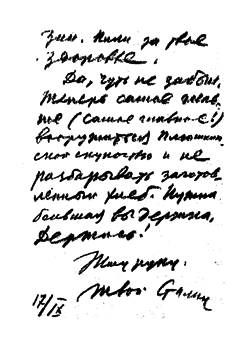 зии. Пили за твое
здоровье.
Да, чуть не забыл.
Теперь самое глав-
ное (самое главное!)
вооружиться Плюшкин-
ской скупостью и не
разбазаривать заготов-
ленный хлеб. Нужна
большая выдержка.
Держись!
Жму руку.
Твой Сталин
17/IX